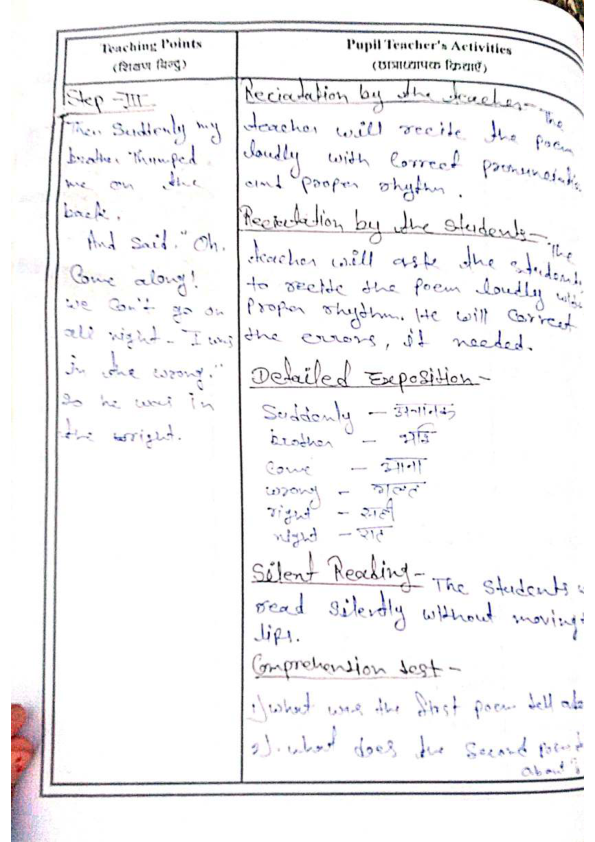 Teaching Points
(शिक्षण बिन्दु)
Pupil Teacher's Activities
(छात्राध्यापक क्रियाएँ)
Step -III
Then Suddenly my
brother Thumped
me on the
back.
And Said. "Oh.
Come along!
we Con't go on
all night - I was
in the wrong."
So he was in
the wright.
Reciadation by the teacher- The
teacher will recite the poem
loudly with Correct
and proper rhythm.
Reciadation by the students- The
teacher will aske the students
to recite the poem loudly with
Proper rhythm. He will Correct
the errors, if needed.
Detailed Exposition-
Suddenly - अचानक
brother - भाई
Come - आना
wrong - गलत
right - सही
night - रात
Silent Reading- The Students
read Silently without moving
lips.
Comprehension test -
1) what was the first poem tell
2). what does the Second poem
about